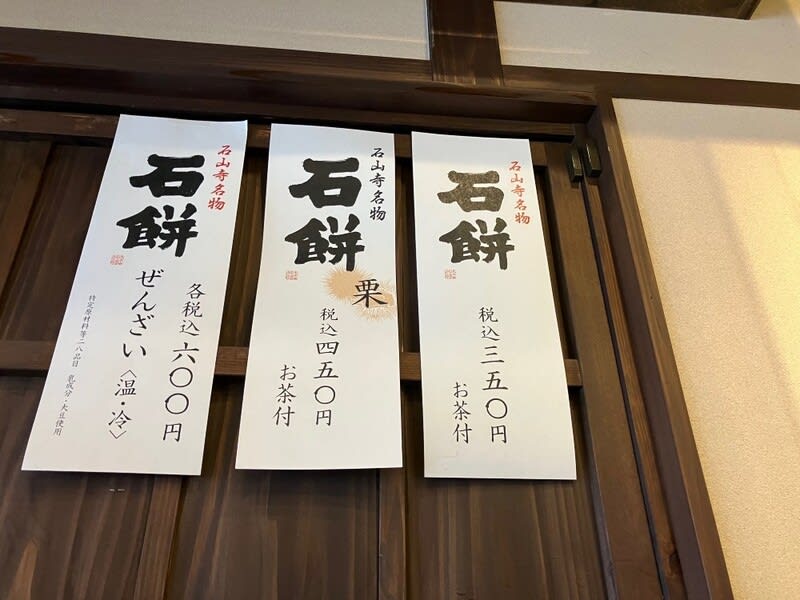 石山寺名物
石餅
税込三五〇円
お茶付
石山寺名物
石餅
栗
税込四五〇円
お茶付
石山寺名物
石餅
ぜんざい〈温・冷〉
各税込六〇〇円
特定原材料等二八品目 乳成分・大豆使用